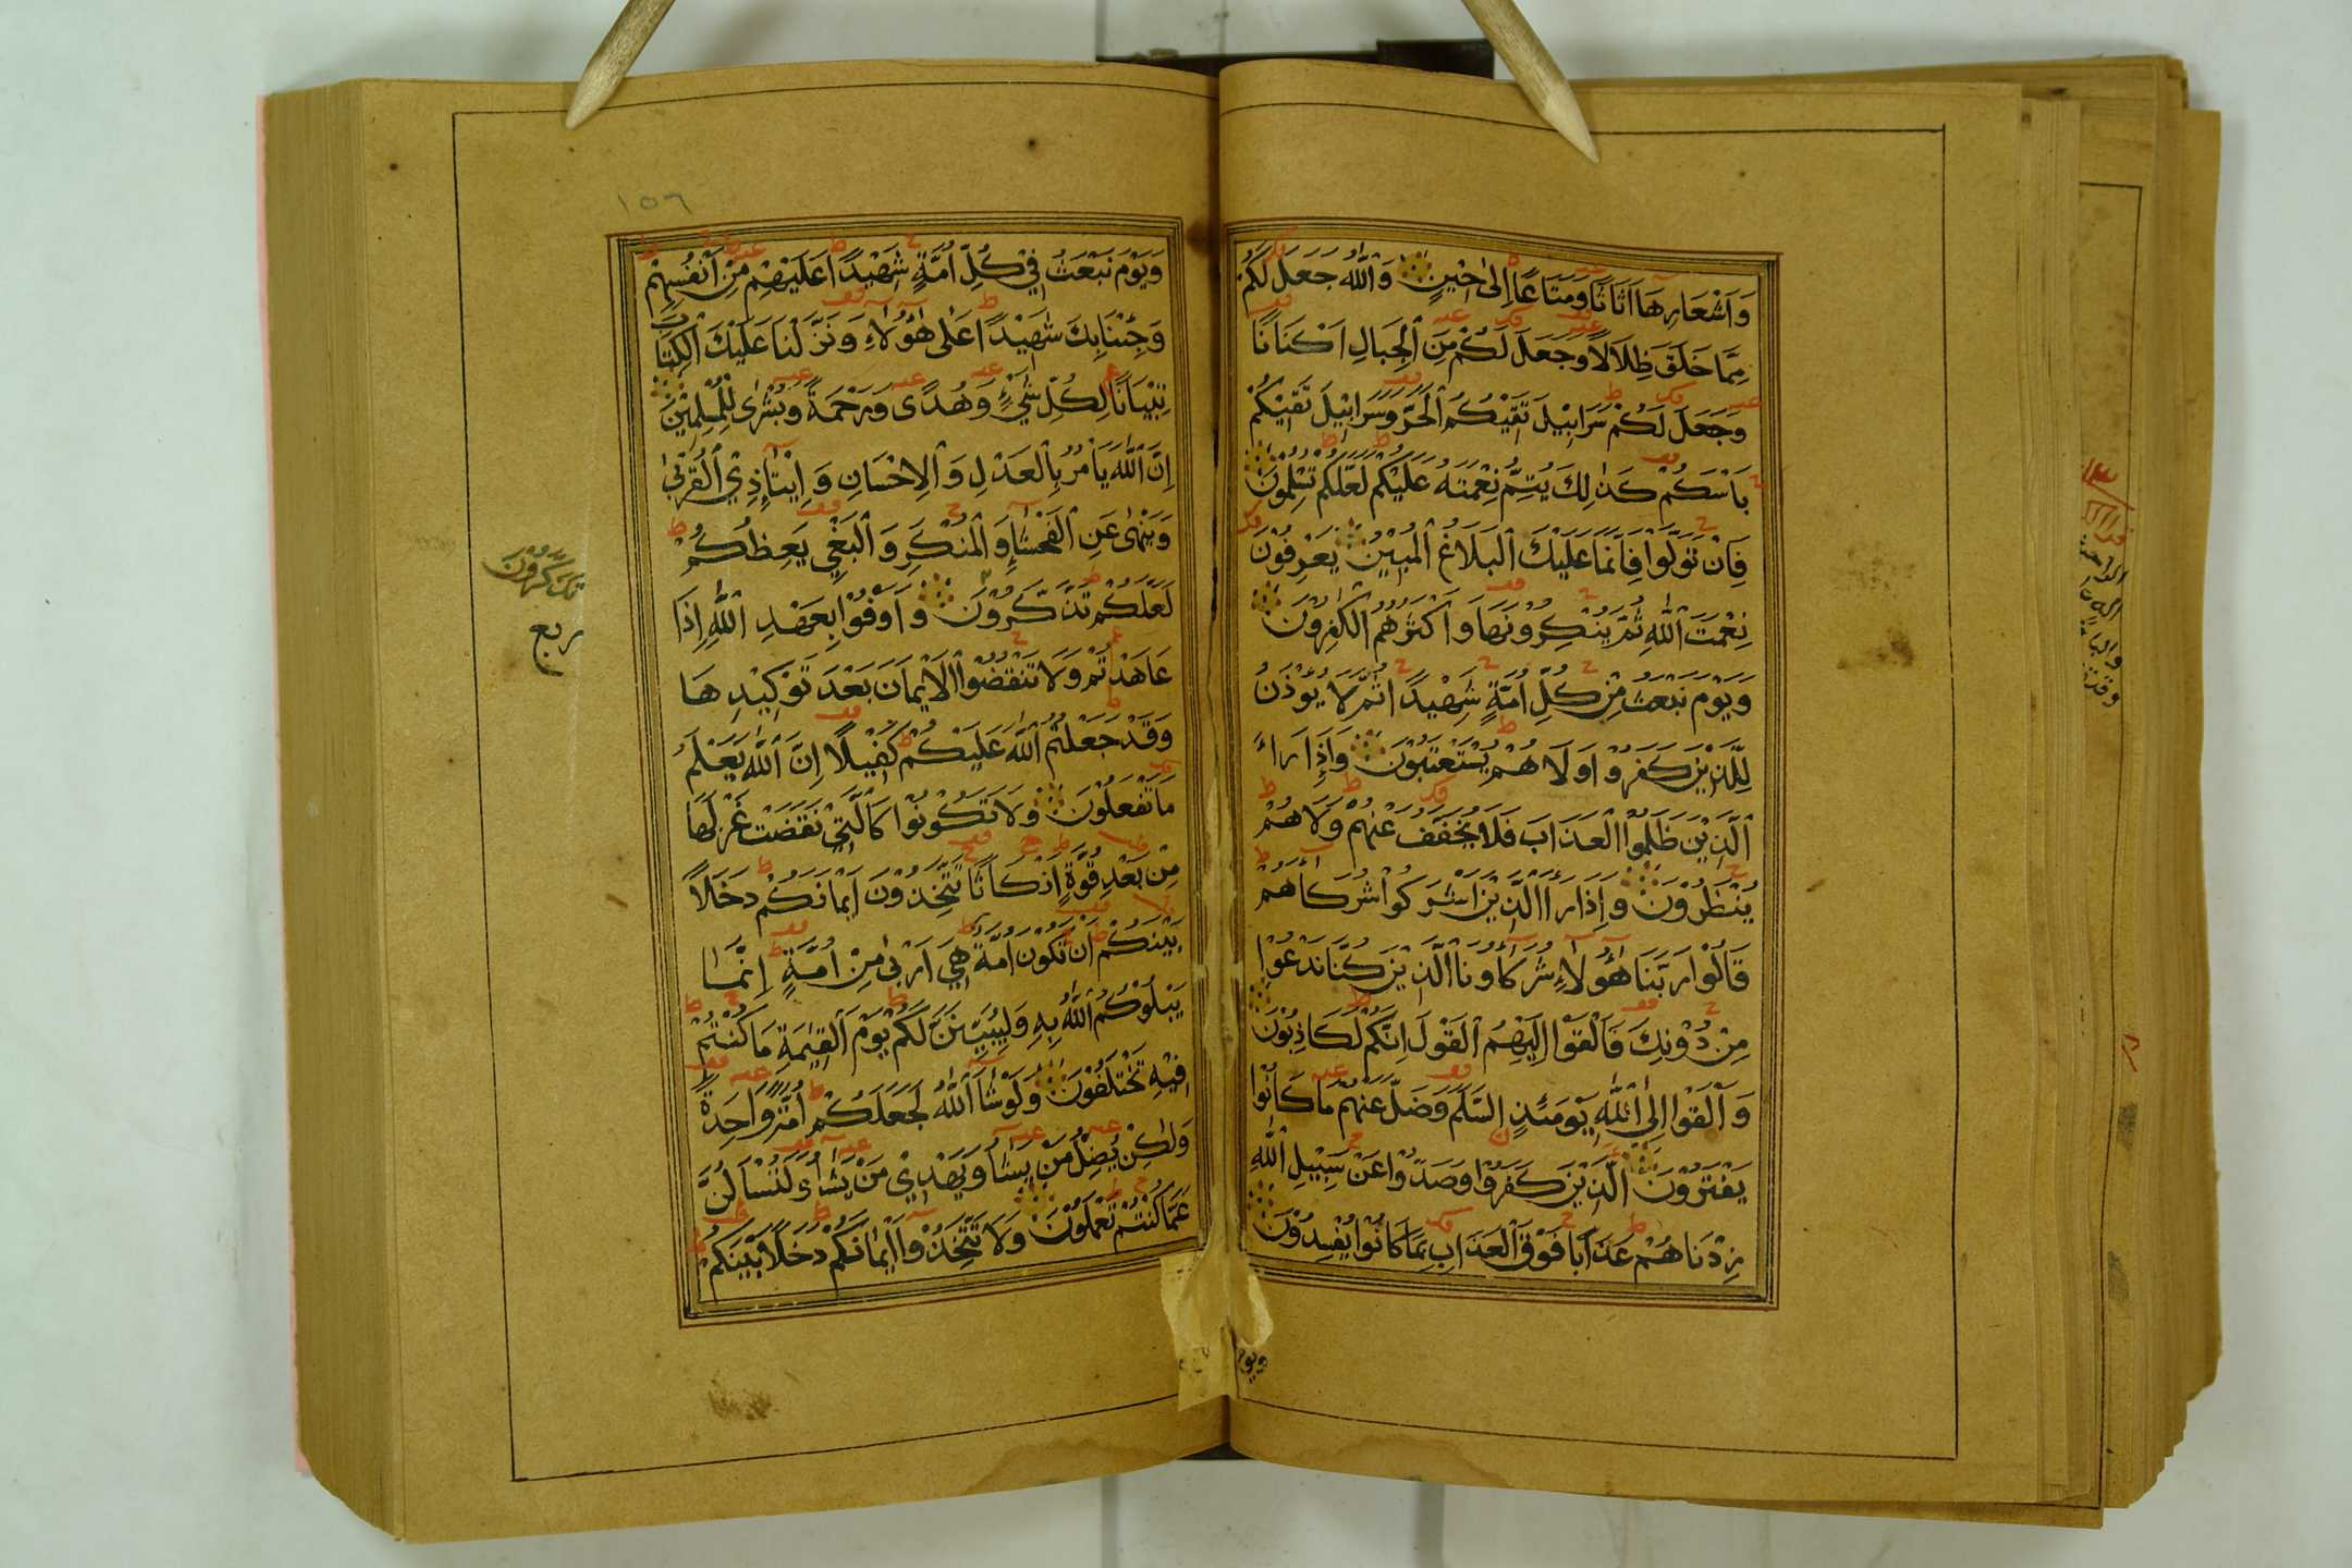 وَاَشْعَارِهَا اَثَاثًا وَمَتَاعًا اِلٰى حِيْنٍ وَاللّٰهُ جَعَلَ لَكُمْ
مِمَّا خَلَقَ ظِلَالًا وَجَعَلَ لَكُمْ مِنَ الْجِبَالِ اَكْنَانًا
وَجَعَلَ لَكُمْ سَرَابِيْلَ تَقِيْكُمُ الْحَرَّ وَسَرَابِيْلَ تَقِيْكُمْ
بَاْسَكُمْ كَذٰلِكَ يُتِمُّ نِعْمَتَهُ عَلَيْكُمْ لَعَلَّكُمْ تُسْلِمُوْنَ
فَاِنْ تَوَلَّوْا فَاِنَّمَا عَلَيْكَ الْبَلَاغُ الْمُبِيْنُ يَعْرِفُوْنَ
نِعْمَتَ اللّٰهِ ثُمَّ يُنْكِرُوْنَهَا وَاَكْثَرُهُمُ الْكٰفِرُوْنَ
وَيَوْمَ نَبْعَثُ مِنْ كُلِّ اُمَّةٍ شَهِيْدًا ثُمَّ لَا يُؤْذَنُ
لِلَّذِيْنَ كَفَرُوْا وَلَا هُمْ يُسْتَعْتَبُوْنَ وَاِذَا رَاَ
الَّذِيْنَ ظَلَمُوا الْعَذَابَ فَلَا يُخَفَّفُ عَنْهُمْ وَلَا هُمْ
يُنْظَرُوْنَ وَاِذَا رَاَ الَّذِيْنَ اَشْرَكُوْا شُرَكَاۤءَهُمْ
قَالُوْا رَبَّنَا هٰۤؤُلَاۤءِ شُرَكَاۤؤُنَا الَّذِيْنَ كُنَّا نَدْعُوْا
مِنْ دُوْنِكَ فَاَلْقَوْا اِلَيْهِمُ الْقَوْلَ اِنَّكُمْ لَكَاذِبُوْنَ
وَاَلْقَوْا اِلَى اللّٰهِ يَوْمَئِذٍ السَّلَمَ وَضَلَّ عَنْهُمْ مَا كَانُوْا
يَفْتَرُوْنَ الَّذِيْنَ كَفَرُوْا وَصَدُّوْا عَنْ سَبِيْلِ اللّٰهِ
زِدْنَاهُمْ عَذَابًا فَوْقَ الْعَذَابِ بِمَا كَانُوْا يُفْسِدُوْنَ
ويوم
١٥٦
وَيَوْمَ نَبْعَثُ فِيْ كُلِّ اُمَّةٍ شَهِيْدًا عَلَيْهِمْ مِنْ اَنْفُسِهِمْ
وَجِئْنَا بِكَ شَهِيْدًا عَلٰى هٰۤؤُلَاۤءِ وَنَزَّلْنَا عَلَيْكَ الْكِتَابَ
تِبْيَانًا لِكُلِّ شَيْءٍ وَهُدًى وَرَحْمَةً وَبُشْرٰى لِلْمُسْلِمِيْنَ
اِنَّ اللّٰهَ يَاْمُرُ بِالْعَدْلِ وَالْاِحْسَانِ وَاِيْتَاۤءِ ذِي الْقُرْبٰى
وَيَنْهٰى عَنِ الْفَحْشَاۤءِ وَالْمُنْكَرِ وَالْبَغْيِ يَعِظُكُمْ
لَعَلَّكُمْ تَذَكَّرُوْنَ وَاَوْفُوْا بِعَهْدِ اللّٰهِ اِذَا
عَاهَدْتُمْ وَلَا تَنْقُضُوا الْاَيْمَانَ بَعْدَ تَوْكِيْدِهَا
وَقَدْ جَعَلْتُمُ اللّٰهَ عَلَيْكُمْ كَفِيْلًا اِنَّ اللّٰهَ يَعْلَمُ
مَا تَفْعَلُوْنَ وَلَا تَكُوْنُوْا كَالَّتِيْ نَقَضَتْ غَزْلَهَا
مِنْ بَعْدِ قُوَّةٍ اَنْكَاثًا تَتَّخِذُوْنَ اَيْمَانَكُمْ دَخَلًا
بَيْنَكُمْ اَنْ تَكُوْنَ اُمَّةٌ هِيَ اَرْبٰى مِنْ اُمَّةٍ اِنَّمَا
يَبْلُوْكُمُ اللّٰهُ بِهِ وَلِيُبَيِّنَنَّ لَكُمْ يَوْمَ الْقِيٰمَةِ مَا كُنْتُمْ
فِيْهِ تَخْتَلِفُوْنَ وَلَوْ شَاۤءَ اللّٰهُ لَجَعَلَكُمْ اُمَّةً وَاحِدَةً
وَلٰكِنْ يُضِلُّ مَنْ يَشَاۤءُ وَيَهْدِيْ مَنْ يَشَاۤءُ وَلَتُسْاَلُنَّ
عَمَّا كُنْتُمْ تَعْمَلُوْنَ وَلَا تَتَّخِذُوْا اَيْمَانَكُمْ دَخَلًا بَيْنَكُمْ
تَذَكَّرُوْنَ
ربع